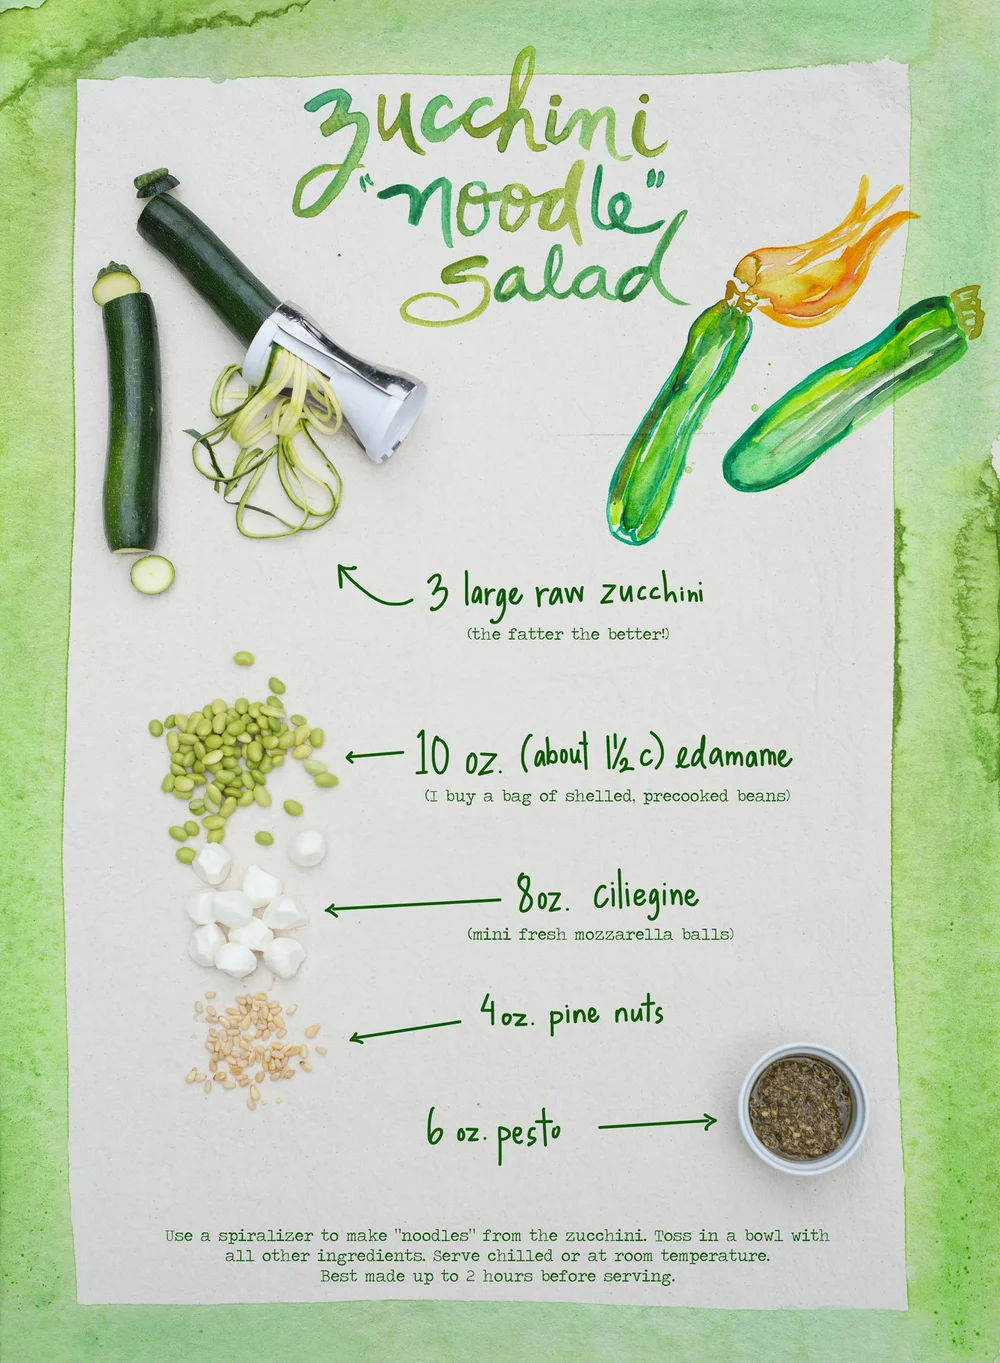 zucchini
"noodle"
salad
3 large raw zucchini
(the fatter the better!)
10 oz. (about 1½ c) edamame
(I buy a bag of shelled, precooked beans)
8oz. ciliegine
(mini fresh mozzarella balls)
4oz. pine nuts
6 oz. pesto
Use a spiralizer to make "noodles" from the zucchini. Toss in a bowl with
all other ingredients. Serve chilled or at room temperature.
Best made up to 2 hours before serving.